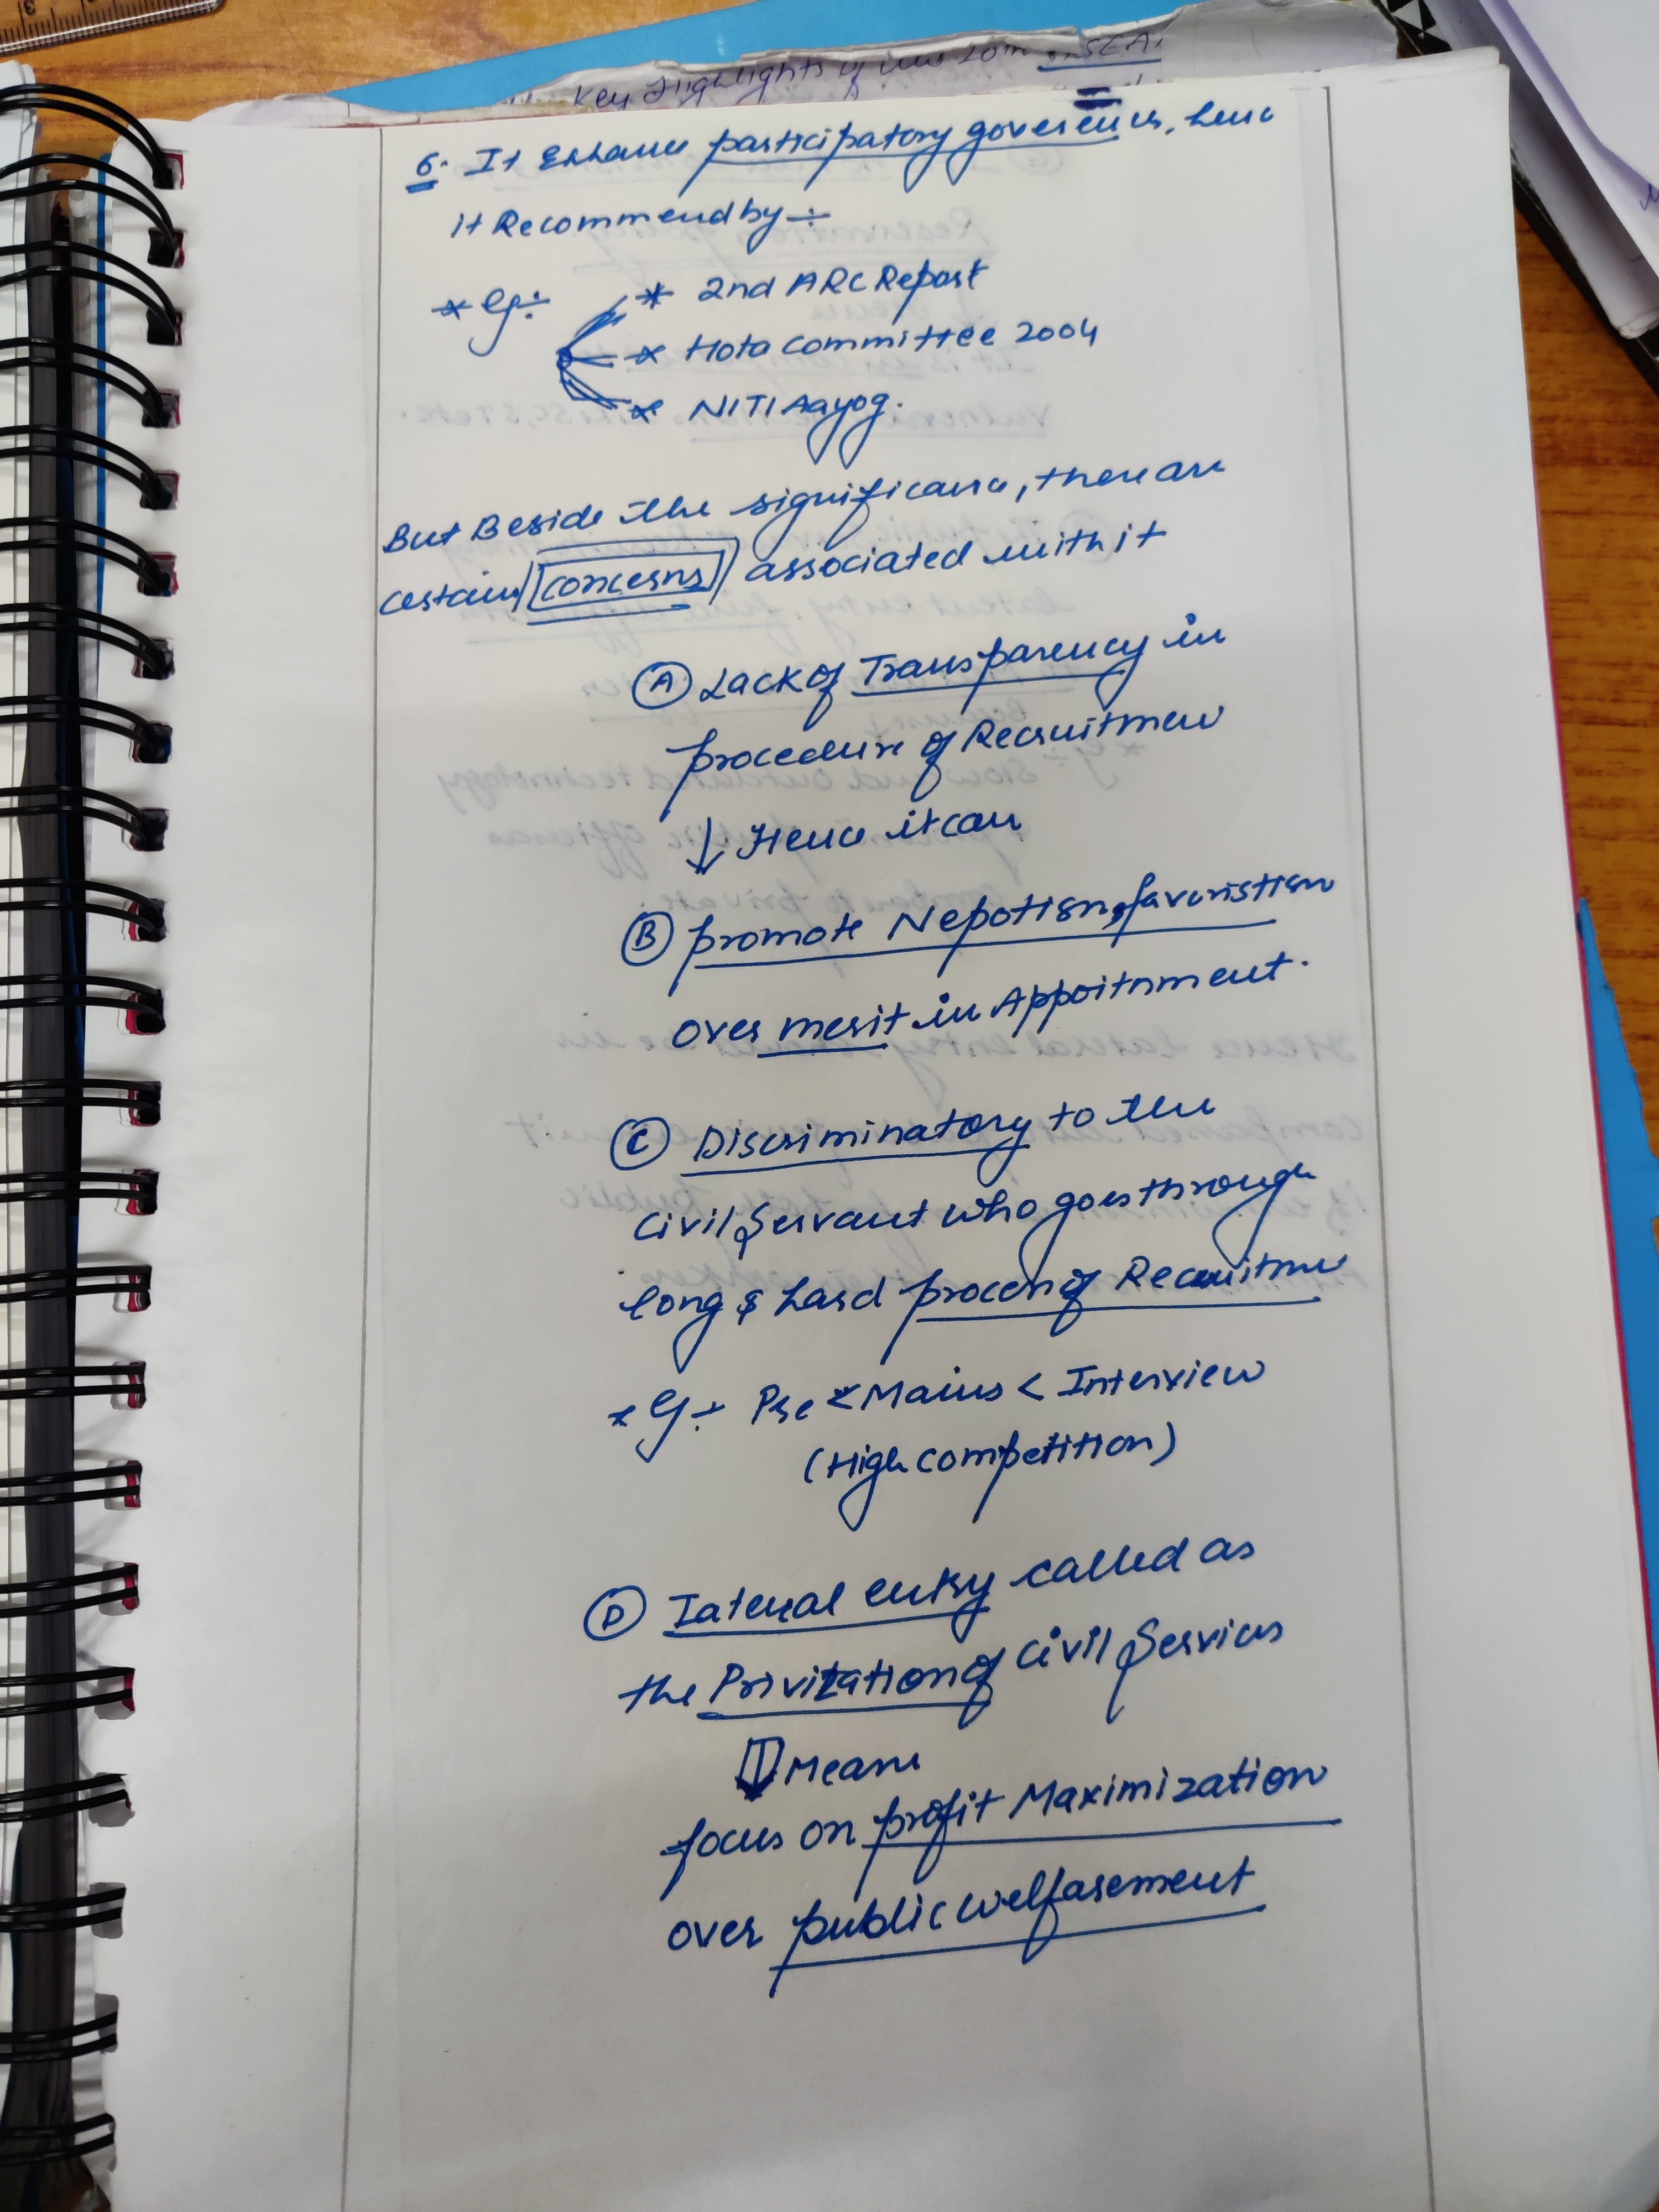 Key Highlights of the 20th
6. It Enhance participatory goverence, henc
it Recommend by ÷
* eg ÷
* 2nd ARC Report
* Hota committee 2004
* NITI Aayog.
But Beside the significance, there are
certain concerns associated with it
(A) Lack of Transparency in
procedure of Recruitmen
↓ Hence it can
(B) promote Nepotism, favoristism
over merit in Appoitnment.
(C) Discriminatory to the
civil servant who goes through
long & hard process of Recruitme
* eg ÷ Pre < Mains < Interview
(High competition)
(D) Lateral entry called as
the Privitzation of civil services
⇓ Means
focus on profit Maximization
over public welfarement